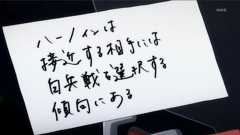 ハーノインは
接近する相手には
白兵戦を選択する
傾向にある